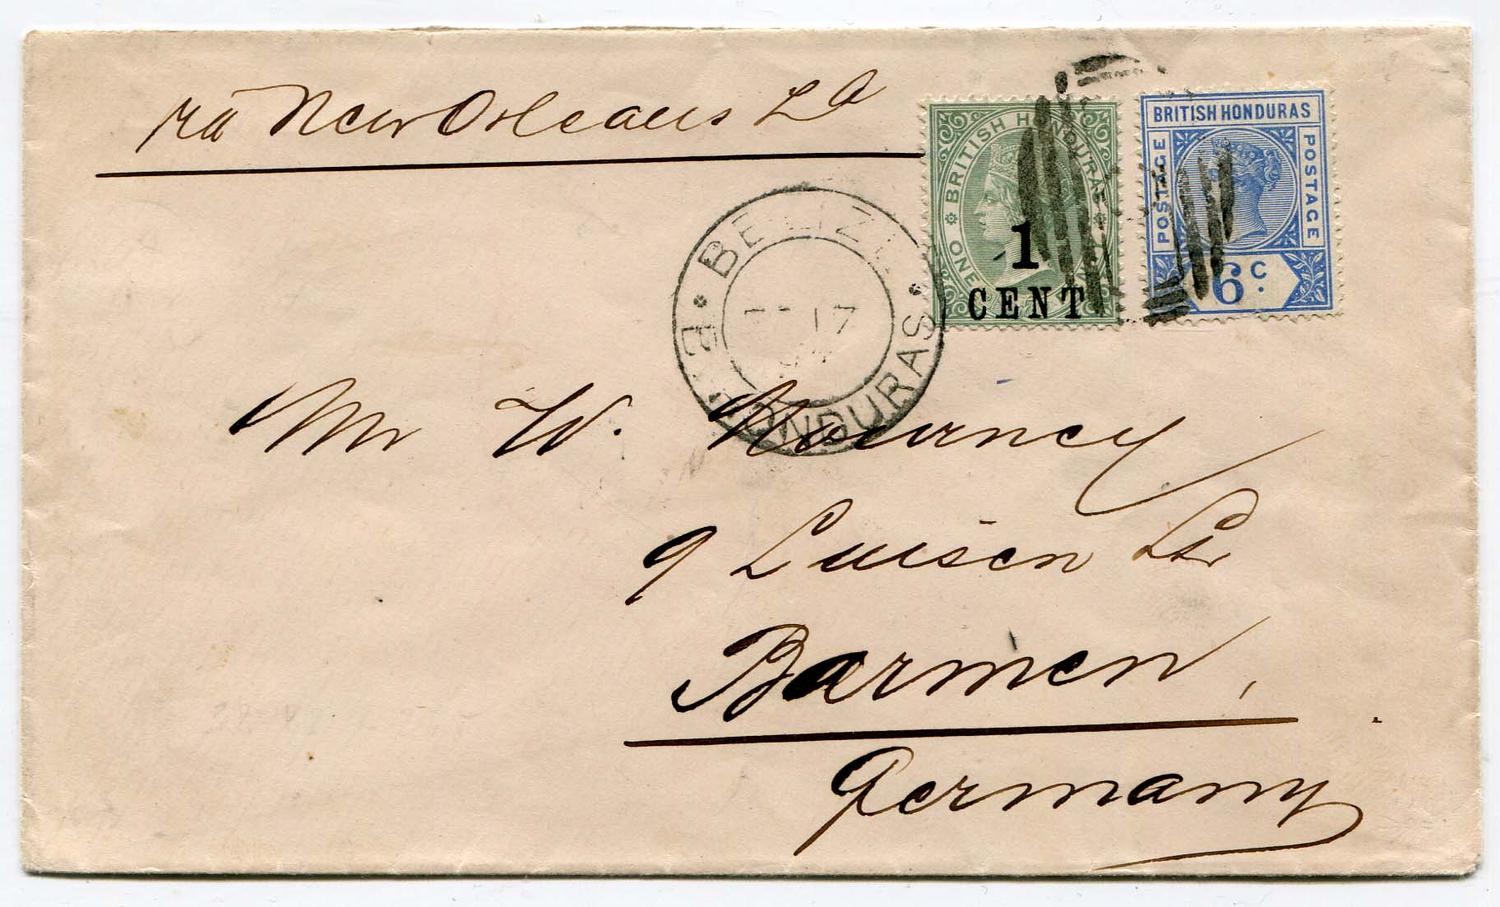 via New Orleans La
BRITISH HONDURAS
ONE
1
CENT
BRITISH HONDURAS
POSTAGE
POSTAGE
6c.
BELIZE
17
HONDURAS
Mr W. Mourney
9 Luisen Str
Barmen,
Germany